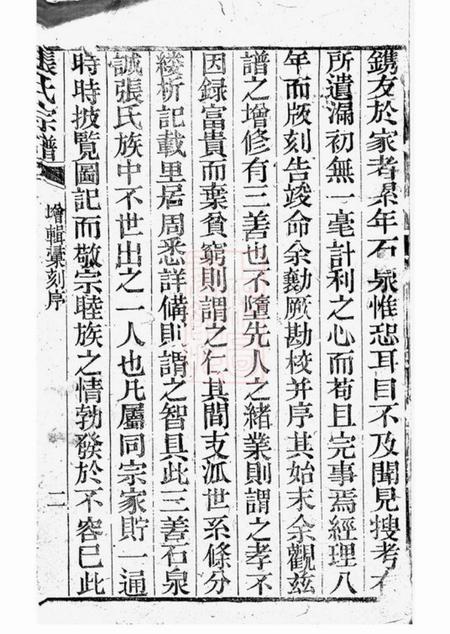 鐫友於家者累年石泉惟恐耳目不及聞見搜考不
所遺漏初無一毫計利之心而苟且完事焉經理八
年而版刻告竣命余勷厥勘校并序其始末余觀茲
譜之增修有三善也不墮先人之緒業則謂之孝不
因録富貴而棄貧窮則謂之仁其間支派世系條分
縷析記載里居周悉詳備則謂之智具此三善石泉
誠張氏族中不世出之一人也凡屬同宗家貯一通
時時披覽圖記而敬宗睦族之情勃發於不容已此
張氏宗譜
增輯彙刻序
二